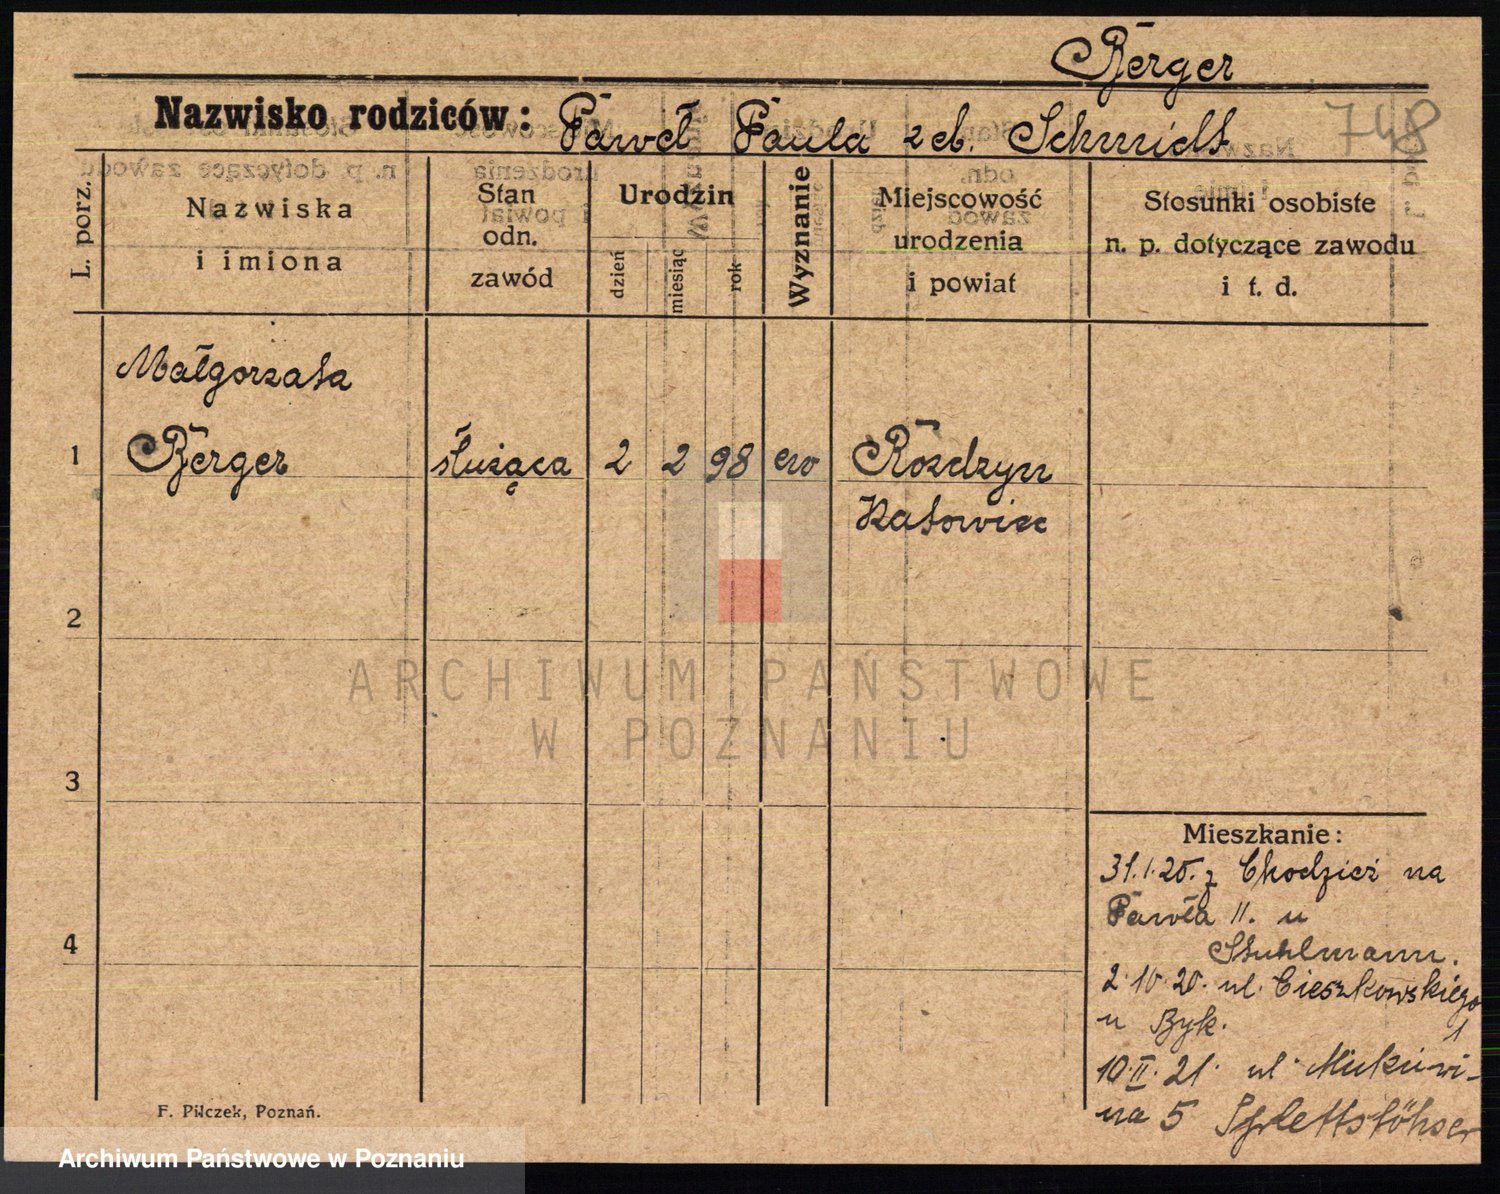 Berger
Nazwisko rodziców: Paweł Paula zeb. Schmidt
748
L. porz.
Nazwiska
i imiona
Stan
odn.
zawód
Urodzin
dzień
miesiąc
rok
Wyznanie
Miejscowość
urodzenia
i powiat
Stosunki osobiste
n. p. dotyczące zawodu
i t. d.
Małgorzata
1 Berger służąca 2 2 98 ew Rozdzyn
Katowice
2
3
4
Mieszkanie:
31.1.20. z Chodzież na
Pawła 11. u
Stuhlmann.
2.10.20. ul. Cieszkowskiego 1
u Byk.
10.II.21. ul
na 5
F. Pilczek, Poznań.
ARCHIWUM PAŃSTWOWE
W POZNANIU
Archiwum Państwowe w Poznaniu